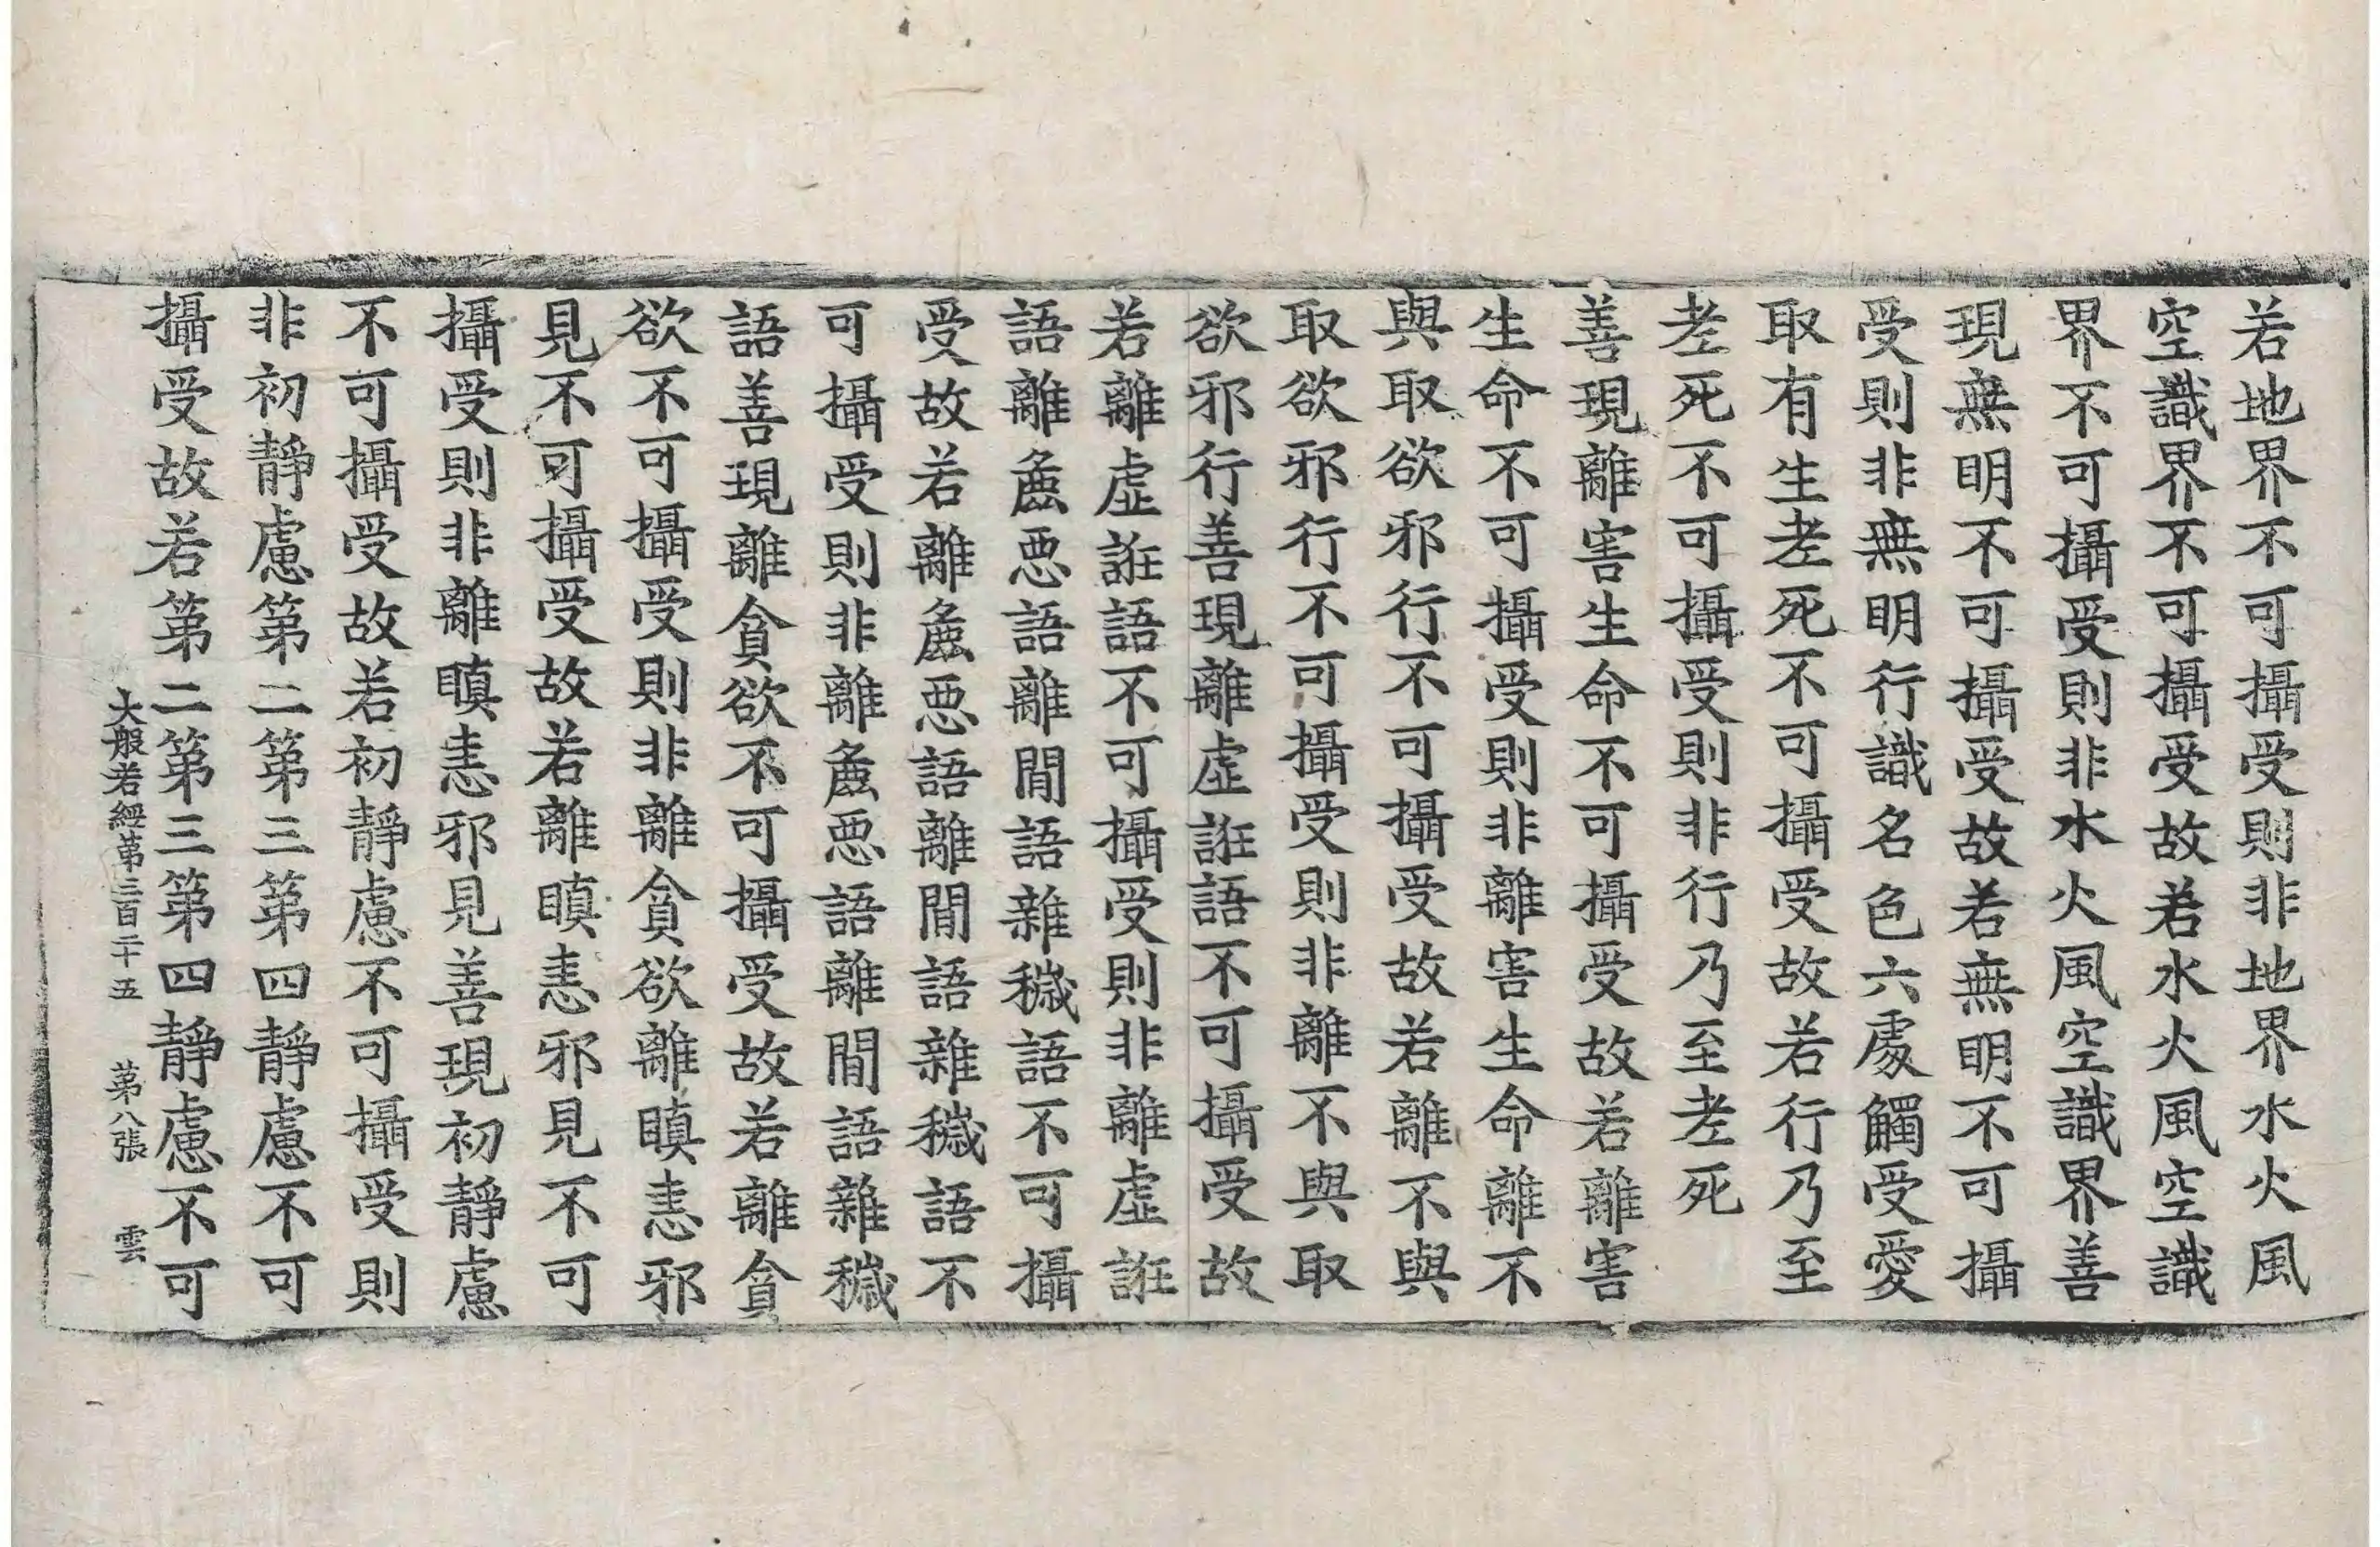 若地界不可攝受則非地界水火風
空識界不可攝受故若水火風空識
界不可攝受則非水火風空識界善
現無明不可攝受故若無明不可攝
受則非無明行識名色六處觸受愛
取有生老死不可攝受故若行乃至
老死不可攝受則非行乃至老死
善現離害生命不可攝受故若離害
生命不可攝受則非離害生命離不
與取欲邪行不可攝受故若離不與
取欲邪行不可攝受則非離不與取
欲邪行善現離虛誑語不可攝受故
若離虛誑語不可攝受則非離虛誑
語離麁惡語離間語雜穢語不可攝
受故若離麁惡語離間語雜穢語不
可攝受則非離麁惡語離間語雜穢
語善現離貪欲不可攝受故若離貪
欲不可攝受則非離貪欲離瞋恚邪
見不可攝受故若離瞋恚邪見不可
攝受則非離瞋恚邪見善現初靜慮
不可攝受故若初靜慮不可攝受則
非初靜慮第二第三第四靜慮不可
攝受故若第二第三第四靜慮不可
大般若經第三百五十五 第八張 雲